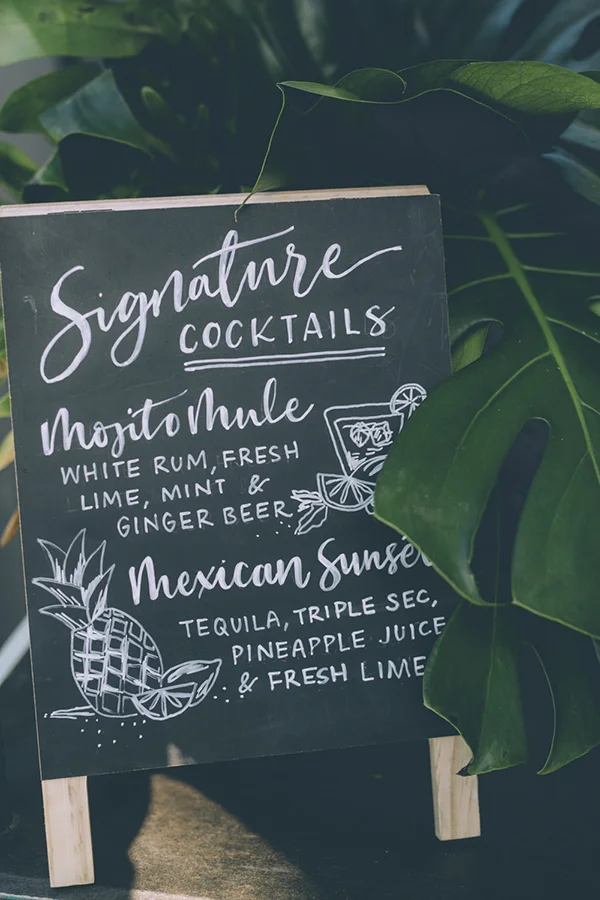 Signature
COCKTAILS
Mojito Mule
WHITE RUM, FRESH
LIME, MINT &
GINGER BEER
Mexican Sunset
TEQUILA, TRIPLE SEC,
PINEAPPLE JUICE
& FRESH LIME